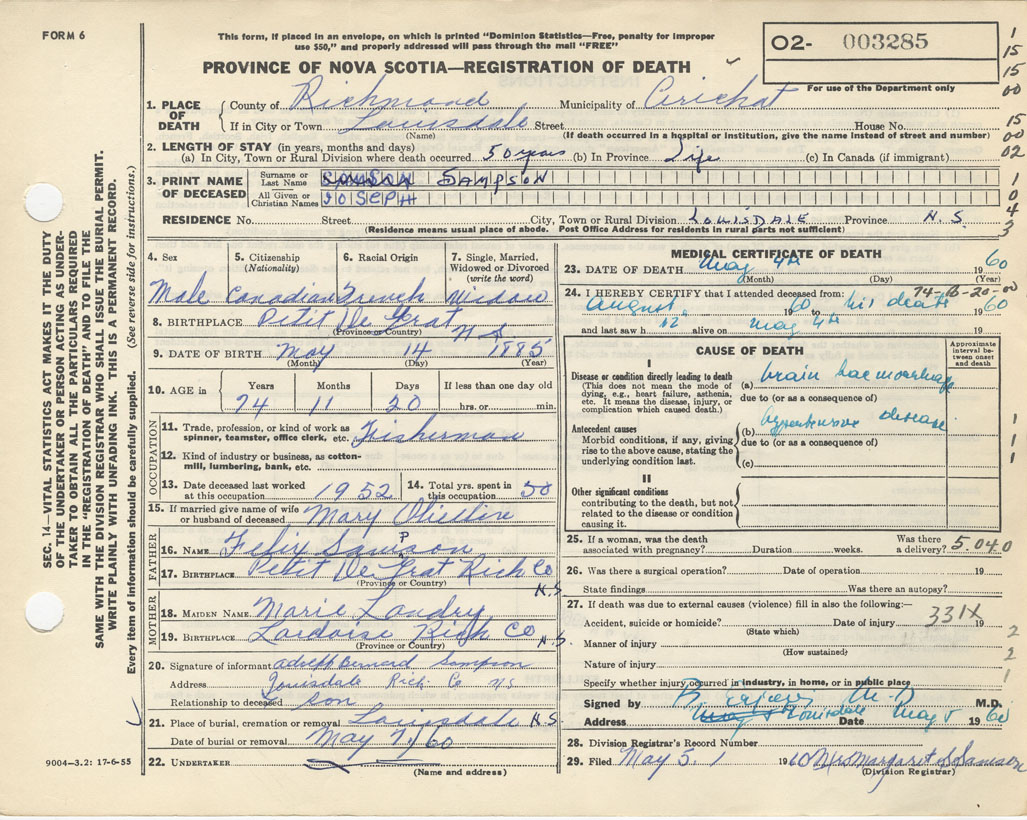 FORM 6
This form, if placed in an envelope, on which is printed "Dominion Statistics—Free, penalty for improper
use $50," and properly addressed will pass through the mail "FREE"
PROVINCE OF NOVA SCOTIA—REGISTRATION OF DEATH
O2- 003285
For use of the Department only
1
15
15
00
15
00
02
1
0
4
3
1. PLACE OF DEATH
County of Richmond Municipality of Arichat
If in City or Town Louisdale Street House No.
(Name) (If death occurred in a hospital or institution, give the name instead of street and number)
2. LENGTH OF STAY (in years, months and days)
(a) In City, Town or Rural Division where death occurred 50 years (b) In Province Life (c) In Canada (if immigrant)
3. PRINT NAME OF DECEASED
Surname or Last Name SAMPSON
All Given or Christian Names JOSEPH
RESIDENCE No. Street City, Town or Rural Division LOUISDALE Province N.S
(Residence means usual place of abode. Post Office Address for residents in rural parts not sufficient)
4. Sex 5. Citizenship (Nationality) 6. Racial Origin 7. Single, Married, Widowed or Divorced (write the word)
Male Canadian French Widow
8. BIRTHPLACE Petit De Grat N S
(Province or Country)
9. DATE OF BIRTH May 14 1885
(Month) (Day) (Year)
10. AGE in Years Months Days If less than one day old
74 11 20 hrs. or min.
OCCUPATION
11. Trade, profession, or kind of work as spinner, teamster, office clerk, etc. Fisherman
12. Kind of industry or business, as cotton-mill, lumbering, bank, etc.
13. Date deceased last worked at this occupation 1952 14. Total yrs. spent in this occupation 50
15. If married give name of wife or husband of deceased Mary
FATHER
16. NAME Felix Sampson
17. BIRTHPLACE Petit De Grat Rich Co N.S
(Province or Country)
MOTHER
18. MAIDEN NAME Marie Landry
19. BIRTHPLACE Lardoise Rich Co N.S.
(Province or Country)
20. Signature of informant Adolph Bernard Sampson
Address Louisdale Rich. Co NS
Relationship to deceased son
21. Place of burial, cremation or removal Louisdale N.S
Date of burial or removal May 7, 60
22. UNDERTAKER
(Name and address)
9004—3.2: 17-6-55
MEDICAL CERTIFICATE OF DEATH
23. DATE OF DEATH May 4th 1960
(Month) (Day) (Year)
74-B-20-00
24. I HEREBY CERTIFY that I attended deceased from:
August 1960 to his death 1960
and last saw h alive on May 4th 19
CAUSE OF DEATH
Approximate interval between onset and death
I
Disease or condition directly leading to death
(This does not mean the mode of dying, e.g., heart failure, asthenia, etc. It means the disease, injury, or complication which caused death.)
(a) brain haemorrhage
due to (or as a consequence of)
Antecedent causes
Morbid conditions, if any, giving rise to the above cause, stating the underlying condition last.
(b) hypertensive disease
due to (or as a consequence of)
(c)
1
1
1
II
Other significant conditions
contributing to the death, but not related to the disease or condition causing it.
25. If a woman, was the death associated with pregnancy? Duration weeks. Was there a delivery? 5.040
26. Was there a surgical operation? Date of operation 19
State findings Was there an autopsy?
27. If death was due to external causes (violence) fill in also the following:—
Accident, suicide or homicide? Date of injury 19
(State which)
331X
Manner of injury
(How sustained)
2
2
1
Nature of injury
Specify whether injury occurred in industry, in home, or in public place
Signed by M.D M.D.
Address Louisdale Date May 5 1960
28. Division Registrar's Record Number
29. Filed May 5. 1960 Mrs Margaret S Sampson
(Division Registrar)
SEC. 14—VITAL STATISTICS ACT MAKES IT THE DUTY
OF THE UNDERTAKER OR PERSON ACTING AS UNDER-
TAKER TO OBTAIN ALL THE PARTICULARS REQUIRED
IN THE "REGISTRATION OF DEATH" AND TO FILE THE
SAME WITH THE DIVISION REGISTRAR WHO SHALL ISSUE THE BURIAL PERMIT.
WRITE PLAINLY WITH UNFADING INK. THIS IS A PERMANENT RECORD.
Every item of information should be carefully supplied. (See reverse side for instructions.)